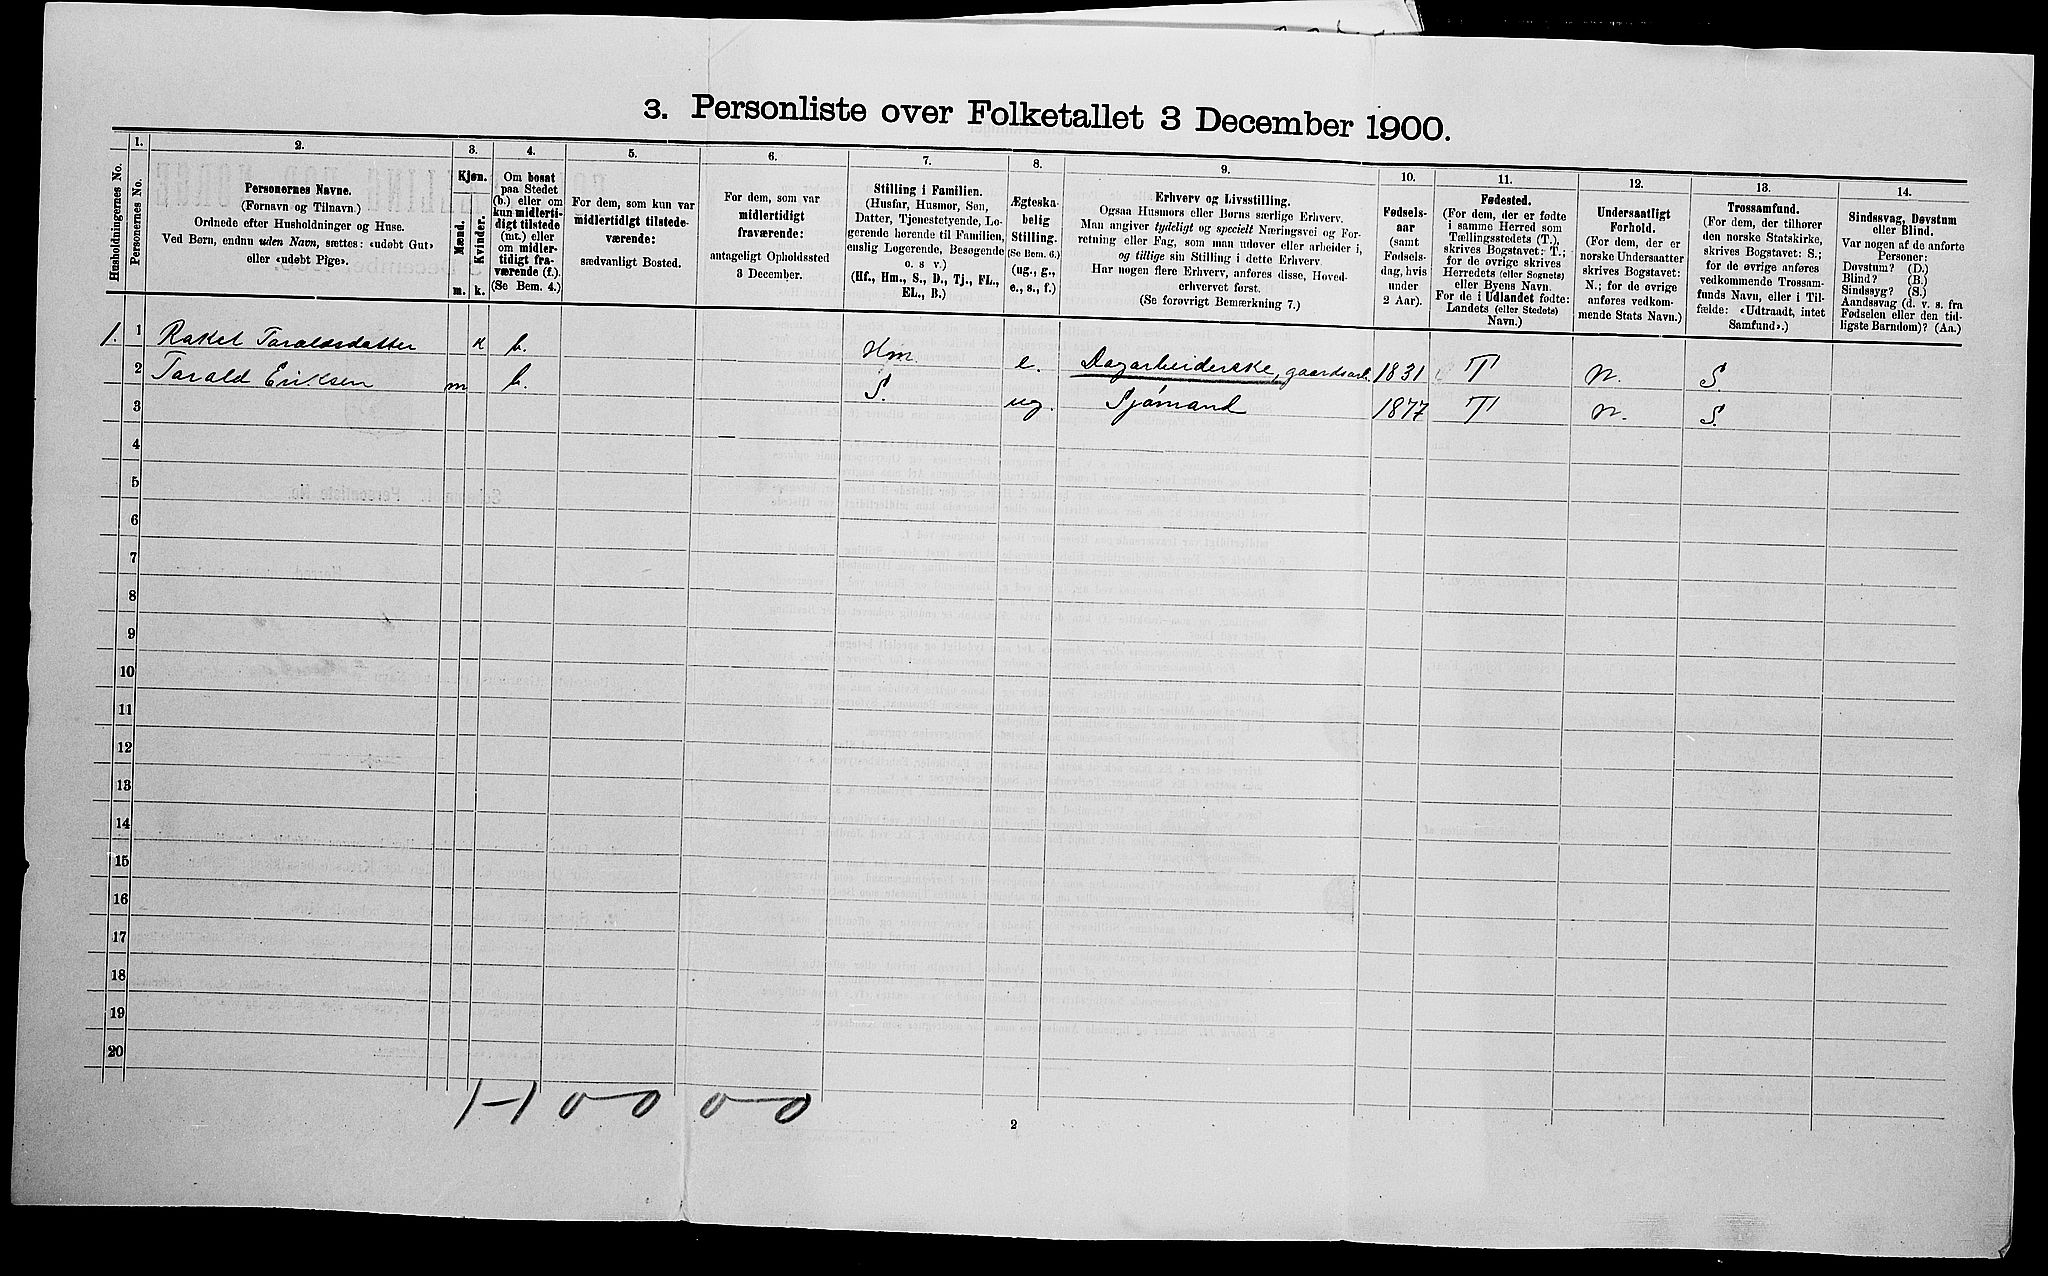 3. Personliste over Folketallet 3 December 1900.
Husholdningernes No.
1.
Personernes No.
2.
Personernes Navne.
(Fornavn og Tilnavn.)
Ordnede efter Husholdninger og Huse.
Ved Børn, endnu uden Navn, sættes: «udøbt Gut»
eller «udøbt Pige».
3.
Kjøn.
Mænd.
Kvinder.
m. k.
4.
Om bosat
paa Stedet
(b.) eller om
kun midlerti-
digt tilstede
(mt.) eller
om midler-
tidigt fra-
værende (f.).
(Se Bem. 4.)
5.
For dem, som kun var
midlertidigt tilstede-
værende:
sædvanligt Bosted.
6.
For dem, som var
midlertidigt
fraværende:
antageligt Opholdssted
3 December.
7.
Stilling i Familien.
(Husfar, Husmor, Søn,
Datter, Tjenestetyende, Lo-
gerende hørende til Familien,
enslig Logerende, Besøgende
o. s v.)
(Hf., Hm., S., D., Tj., FL.,
EL., B.)
8.
Ægteska-
belig
Stilling.
(Se Bem. 6.)
(ug., g.,
e., s., f.)
9.
Erhverv og Livsstilling.
Ogsaa Husmors eller Børns særlige Erhverv.
Man angiver tydeligt og specielt Næringsvei og For-
retning eller Fag, som man udøver eller arbeider i,
og tillige sin Stilling i dette Erhverv.
Har nogen flere Erhverv, anføres disse, Hoved-
erhvervet først.
(Se forøvrigt Bemærkning 7.)
10.
Fødsels-
aar
(samt
Fødsels-
dag, hvis
under
2 Aar).
11.
Fødested.
(For dem, der er fødte
i samme Herred som
Tællingsstedets (T.),
skrives Bogstavet: T.;
for de øvrige skrives
Herredets (eller Sognets)
eller Byens Navn.
For de i Udlandet fødte:
Landets (eller Stedets)
Navn.)
12.
Undersaatligt
Forhold.
(For dem, der er
norske Undersaatter
skrives Bogstavet:
N.; for de øvrige
anføres vedkom-
mende Stats Navn.)
13.
Trossamfund.
(For dem, der tilhører
den norske Statskirke,
skrives Bogstavet: S.;
for de øvrige anføres
vedkommende Trossam-
funds Navn, eller i Til-
fælde: «Udtraadt, intet
Samfund».)
14.
Sindssvag, Døvstum
eller Blind.
Var nogen af de anførte
Personer:
Døvstum? (D.)
Blind? (B.)
Sindssyg? (S.)
Aandssvag (d. v. s. fra
Fødselen eller den tid-
ligste Barndom)? (Aa.)
1. 1 Rakel Taraldsdatter k b. Hm. e. Dagarbeiderske, gaardsarb. 1831 T N. S
2 Tarald Eriksen m b. S. ug. Sjømand 1877 T N. S.
3
4
5
6
7
8
9
10
11
12
13
14
15
16
17
18
19
20
1-1 0 0 0-0
2